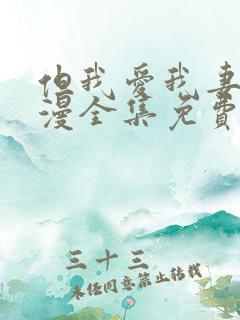 但我爱我妻
漫全集免費
三十三
未经同意禁止转载